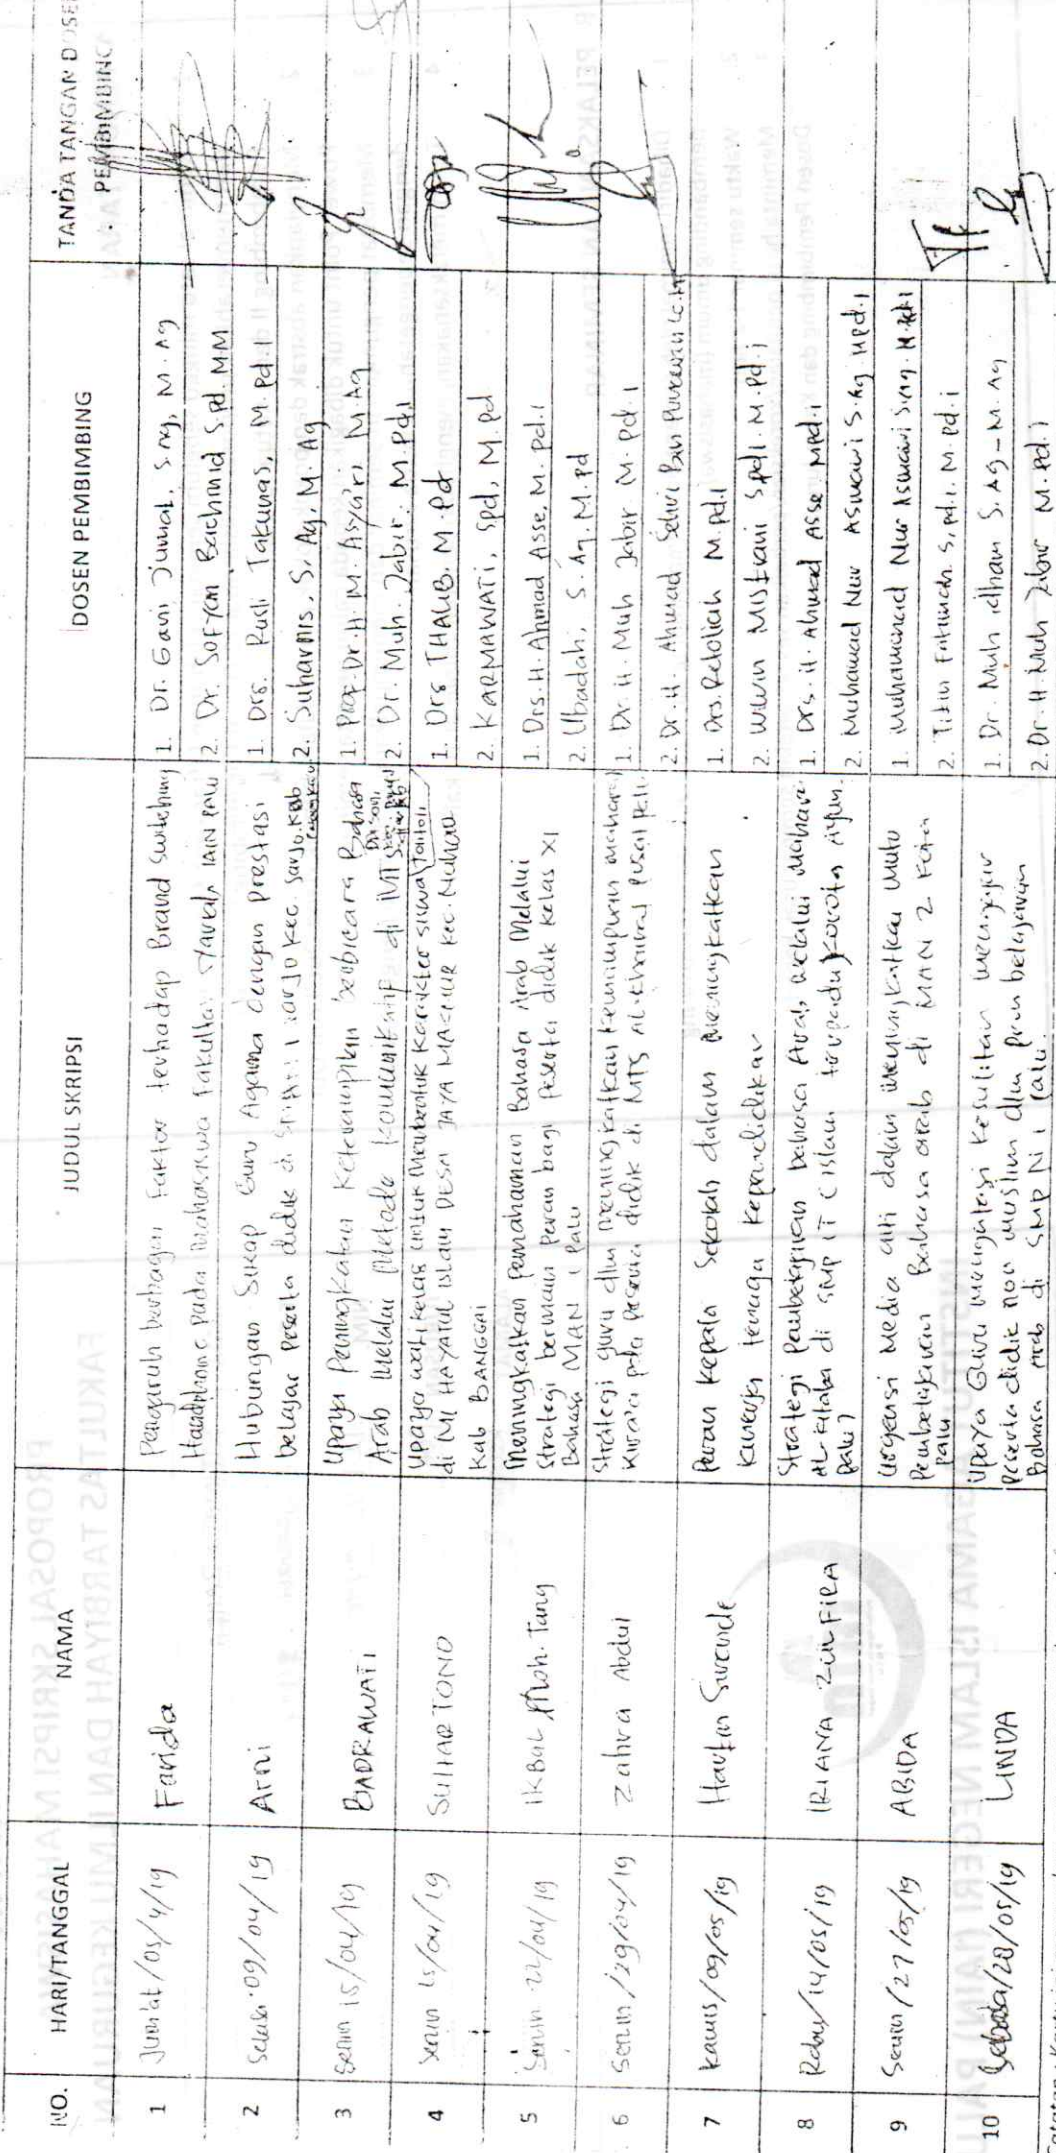 NO.
HARI/TANGGAL
NAMA
JUDUL SKRIPSI
DOSEN PEMBIMBING
TANDA TANGAN DOSEN
PEMBIMBING
1
Jum'at/05/4/19
Farida
Pengaruh berbagai Faktor terhadap Brand Switching
Handphone pada Mahasiswa Fakultas Tarbiyah IAIN Palu
1. Dr. Gani Jumat, S.Ag, M.Ag
2. Dr. Sofyan Bachmid S.pd. MM
2
Selasa 09/04/19
Arni
Hubungan Sikap Guru Agama dengan prestasi
belajar Peserta didik di Sarjo Kec. Sarjo. Kab
1. Drs. Rusli Takunas, M.Pd.I
2. Suharnis, S.Ag, M.Ag
3
Senin 15/04/19
BADRAWATI
Upaya Peningkatan Keterampilan berbicara Bahasa
Arab Melalui Metode Komunikatif di MTS
1. Prof. Dr. H. M. Asy'ari, M.Ag
2. Dr. Muh. Jabir. M.Pd.I
4
Senin 15/04/19
SUHARTONO
Upaya wali kelas untuk Membentuk Karakter siswa
di MI HAYATUL ISLAM DESA JAYA MAKMUR Kec. Nuhon
Kab BANGGAI
1. Drs THALIB. M.Pd
2. KARMAWATI, Spd, M.Pd
5
Senin 22/04/19
IKBAL Moh. Tang
Meningkatkan pemahaman Bahasa Arab Melalui
Strategi bermain Peran bagi Peserta didik kelas XI
Bahasa MAN 1 Palu
1. Drs. H. Ahmad Asse. M.pd.I
2. Ubadah, S.Ag. M.pd
6
Senin/29/04/19
Zahra Abdul
Strategi guru dlm meningkatkan kemampuan maharah
Kira'a pada Peserta didik di MTS Al-khairat pusat palu
1. Dr. H. Muh Jabir M.Pd.I
2. Dr. H. Ahmad Sehri Bin Punawan Lc. M
7
Kamis/09/05/19
Peran Kepala Sekolah dalam Meningkatkan
Kinerja tenaga Kependidikan
1. Drs. Rusli M.pd.I
2. Wiwin Mistiani S.pd.I. M.Pd.i
8
Rabu/14/05/19
IRIANA ZULFIRA
Strategi Pembelajaran bahasa Arab melalui Maharah
Al-kitabah di SMP IT (islam terpadu) Qurrota A'yun.
Palu)
1. Drs. H. Ahmad Asse Mpd.i
2. Muhamad Nur Asmawi S.Ag Mpd.I
9
Senin/27/05/19
ABIDA
Urgensi Media dalam meningkatkan Mutu
Pembelajaran Bahasa arab di MAN 2 Kota
Palu
1. Muhammad Nur Asmawi S.Ag. M.Pd.I
2. Titin Fatimah. S,Pd.I. M.Pd.i
10
28/05/19
LINDA
Upaya Guru mengatasi Kesulitan mengajar
Peserta didik non muslim dlm pembelajaran
Bahasa Arab di SMP N 1 Palu.
1. Dr. Muh idham S.Ag - M.Ag
2. Dr. H. Muh Jabir M.Pd.i